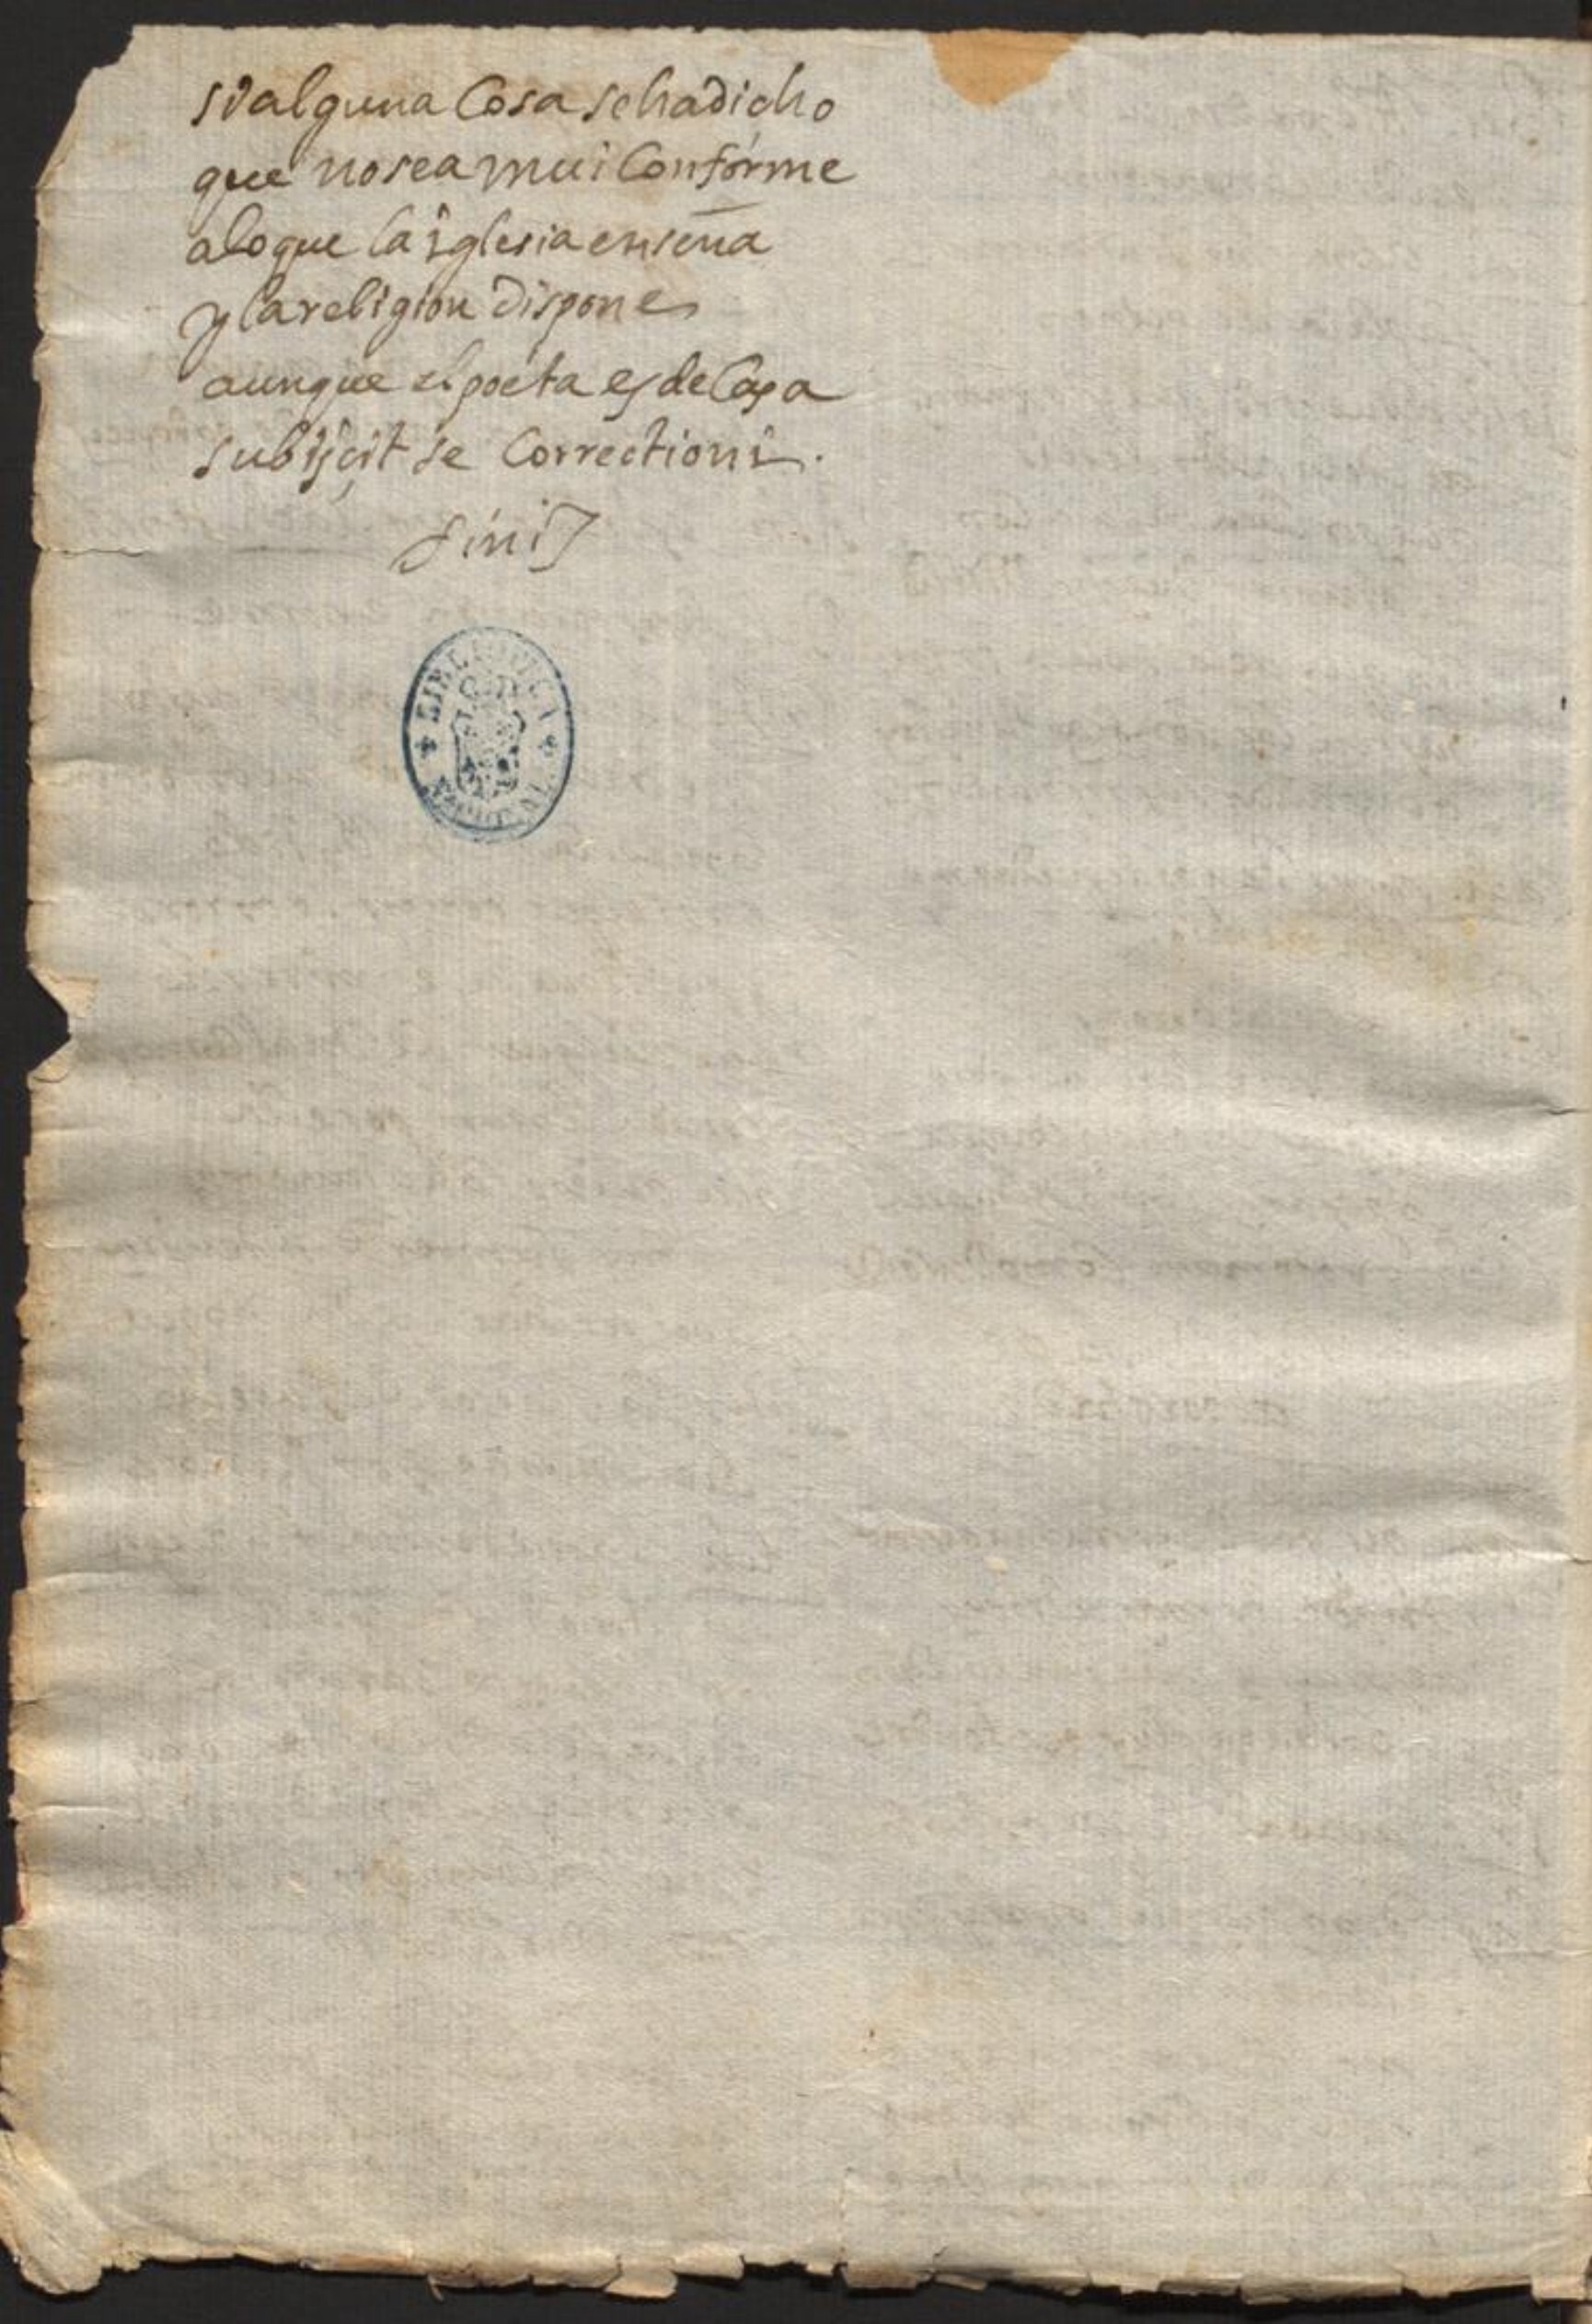 si alguna Cosa se ha dicho
que no sea mui Conforme
a lo que la iglesia enseña
y la religion dispone
aunque el poeta es de Capa
subijçit se Correctioni.
finis
BIBLIOTECA NACIONAL